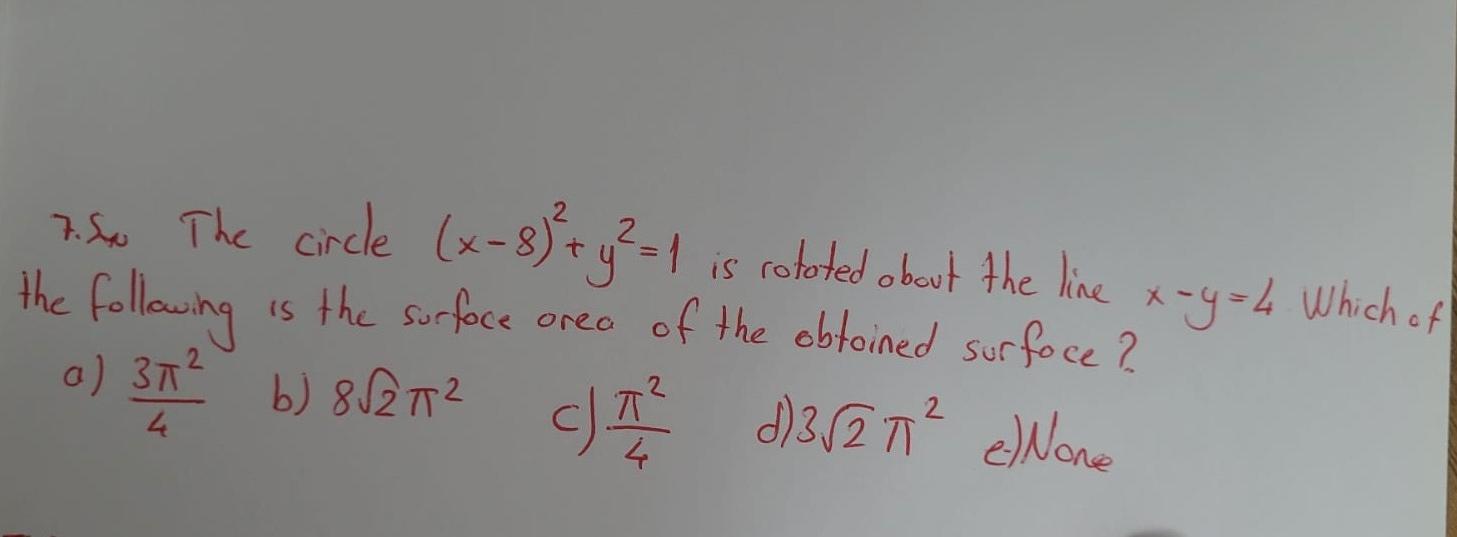 7. The circle (x-8)²+y²=1 is rotated about the line x-y=4 Which of
the following is the surface area of the obtained surface?
a) 3π²/4 b) 8√2π² c) π²/4 d) 3√2π² e) None